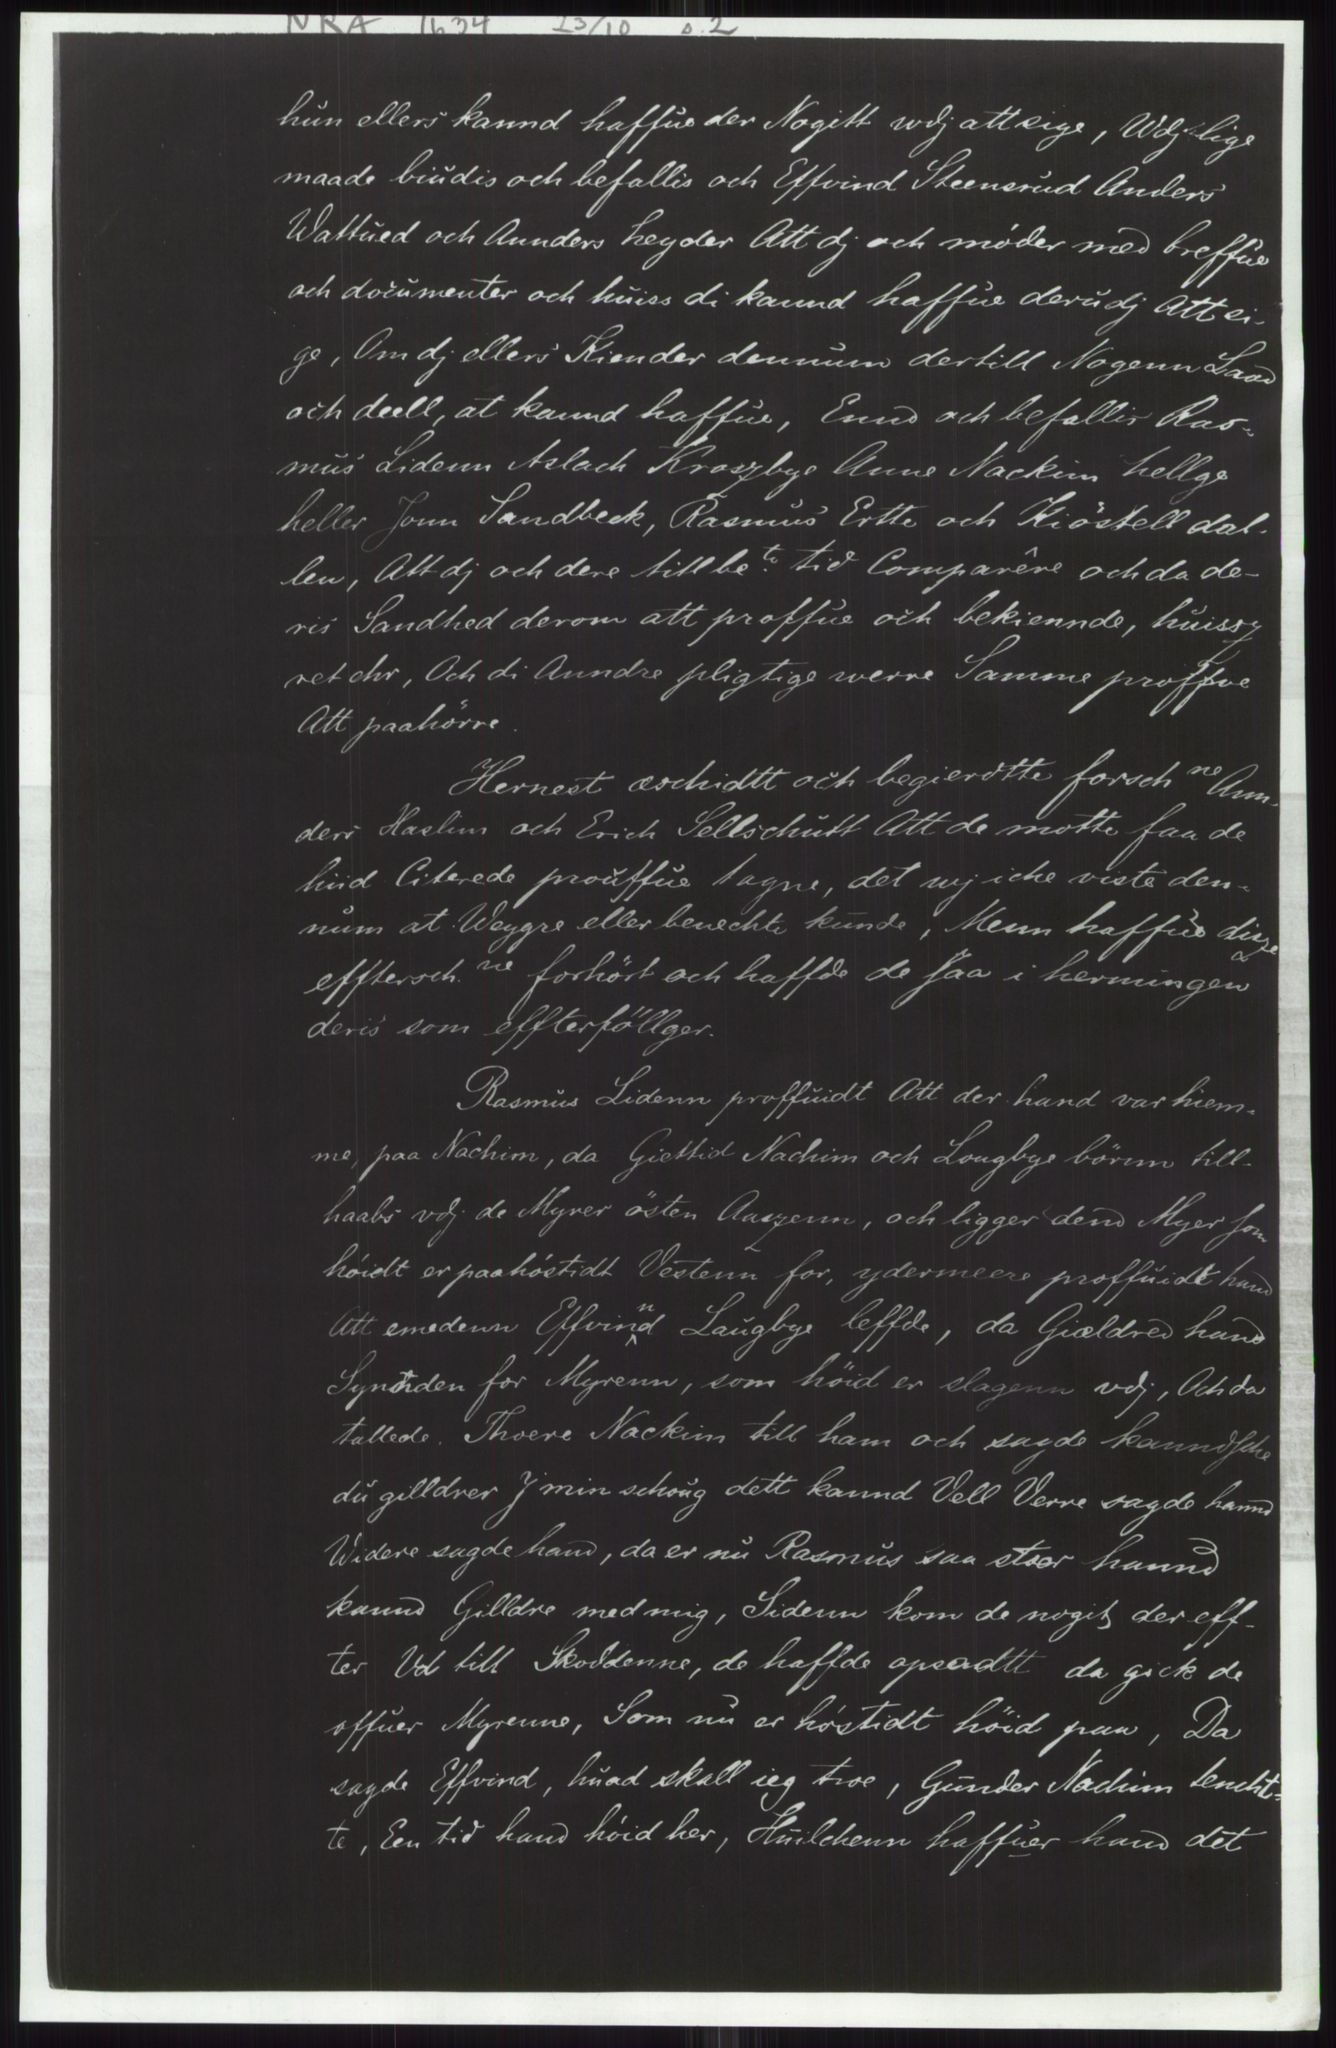 NRA 1634 23/10 s. 2
hun ellers kannd haffue der Nogitt wdj att sige, Wdj lige
maade biudis och befallis och Effvind Steensrud Anders
Wattued och Aunders heyder Att dj och møder med breffue
och documenter och huiss di kannd haffue derudj Att si-
ge, Om dj ellers Kiender dennum dertill Nogenn Laad
och deell, at kannd haffue, Ennd och befallis Ras-
mus Lidenn Aslach Kroszbye Anne Nackim hellge
heller Jonn Sandbeck, Rasmus Ertte och Kiöstell dal-
len, Att dj och dere till be.te tid Comparêre och da de-
ris Sandhed derom att proffue och bekiennde, huissz
ret ehr, Och di Aundre pligtige werre Samme proffue
Att paahörre.
Hernest æschidtt och begierdtte forschne Aun-
ders Haslim och Erich Sellschutt Att de motte faa de
hiid Citerede prouffue tagne, det wj iche viste den-
num at Weygre eller benechte kunde, Menn haffue disze
efftersch.ne forhört och haffde de saa i hermingen
deris som effterföllger.
Rasmus Lidenn proffuidt Att der hand var hiem-
me, paa Nachim, da Giettid Nachim och Lougbye börnn till-
haabs vdj de Myrer östen Aaszenn, och ligger dend Myer som
höidt er paahöstidt Vestenn for, ydermeere proffuidt hand
Att emedenn Effvinnd Laugbye leffde, da Gieldred hand
Synnden for Myrenn, som höid er slagenn vdj, Och da
tallede. Thoere Nackim till ham och sagde kanndsche
du gilldrer J min schoug dett kannd Vell Verre sagde hannd
Widere sagde hand, da er nu Rasmus saa stoer hannd
kannd Gilldre med mig, Sidenn kom de nogit der eff-
ter Vd till Skoddenne, de haffde opsadtt da gick de
offuer Myrenne, Som nu er höstidt höid paa, Da
sagde Effvind, huad skall ieg troe, Gunder Nachim tencht-
te, Een tid hand höid her, Huilchenn haffuer hand det